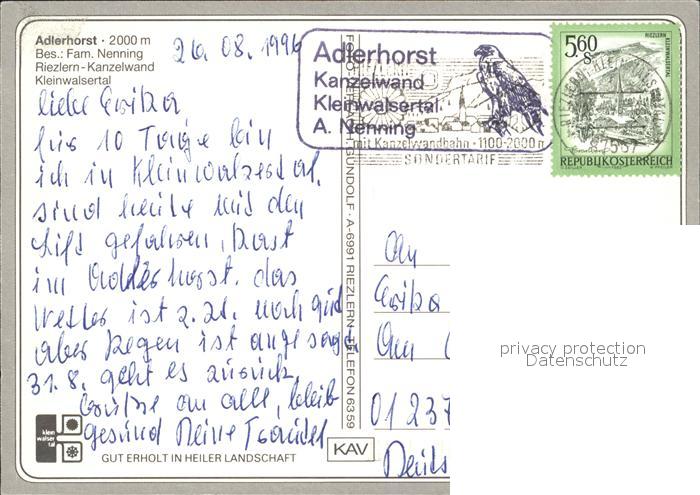 Adlerhorst · 2000 m
Bes.: Fam. Nenning
Riezlern - Kanzelwand
Kleinwalsertal
26.08.1996
liebe Erika
für 10 Tage bin
ich in Kleinwalsertal.
sind heute mit den
Lift gefahren, Rast
im Adlerhorst. das
Wetter ist z.Zt. noch gut
aber Regen ist angesagt
31.8. geht es zurück.
Grüße an alle, bleib
gesund Deine Traudel
klein
walser
tal
GUT ERHOLT IN HEILER LANDSCHAFT
KAV
A-6991 RIEZLERN · TELEFON 6359
Adlerhorst
Kanzelwand
Kleinwalsertal
A. Nenning
mit Kanzelwandbahn · 1100-2000 m
SONDERTARIF
5,60
S
RIEZLERN
KLEINWALSERTAL
87567
REPUBLIK ÖSTERREICH
An
Erika
Am
01237
privacy protection
Datenschutz